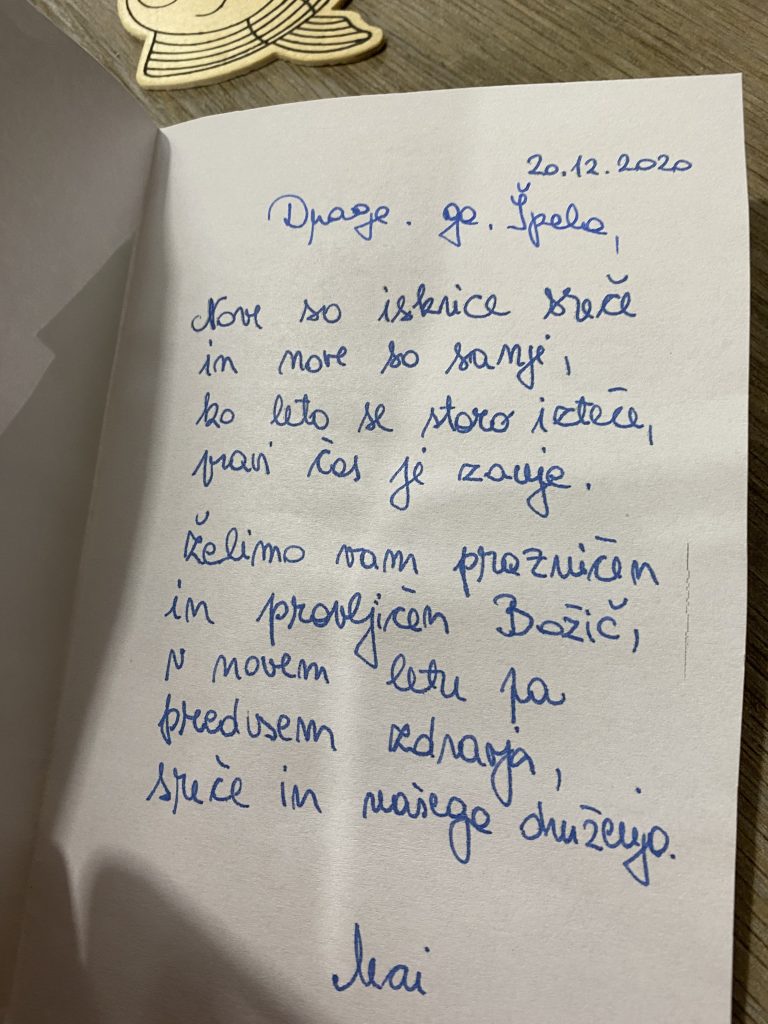 20.12.2020
Drage. ga. Špela,
Nove so iskrice sreče
in nove so sanje,
ko leto se staro izteče,
pravi čas je zanje.
Želimo vam prazničen
in pravljičen Božič,
v novem letu pa
predvsem zdravja,
sreče in našega druženja.
Mai